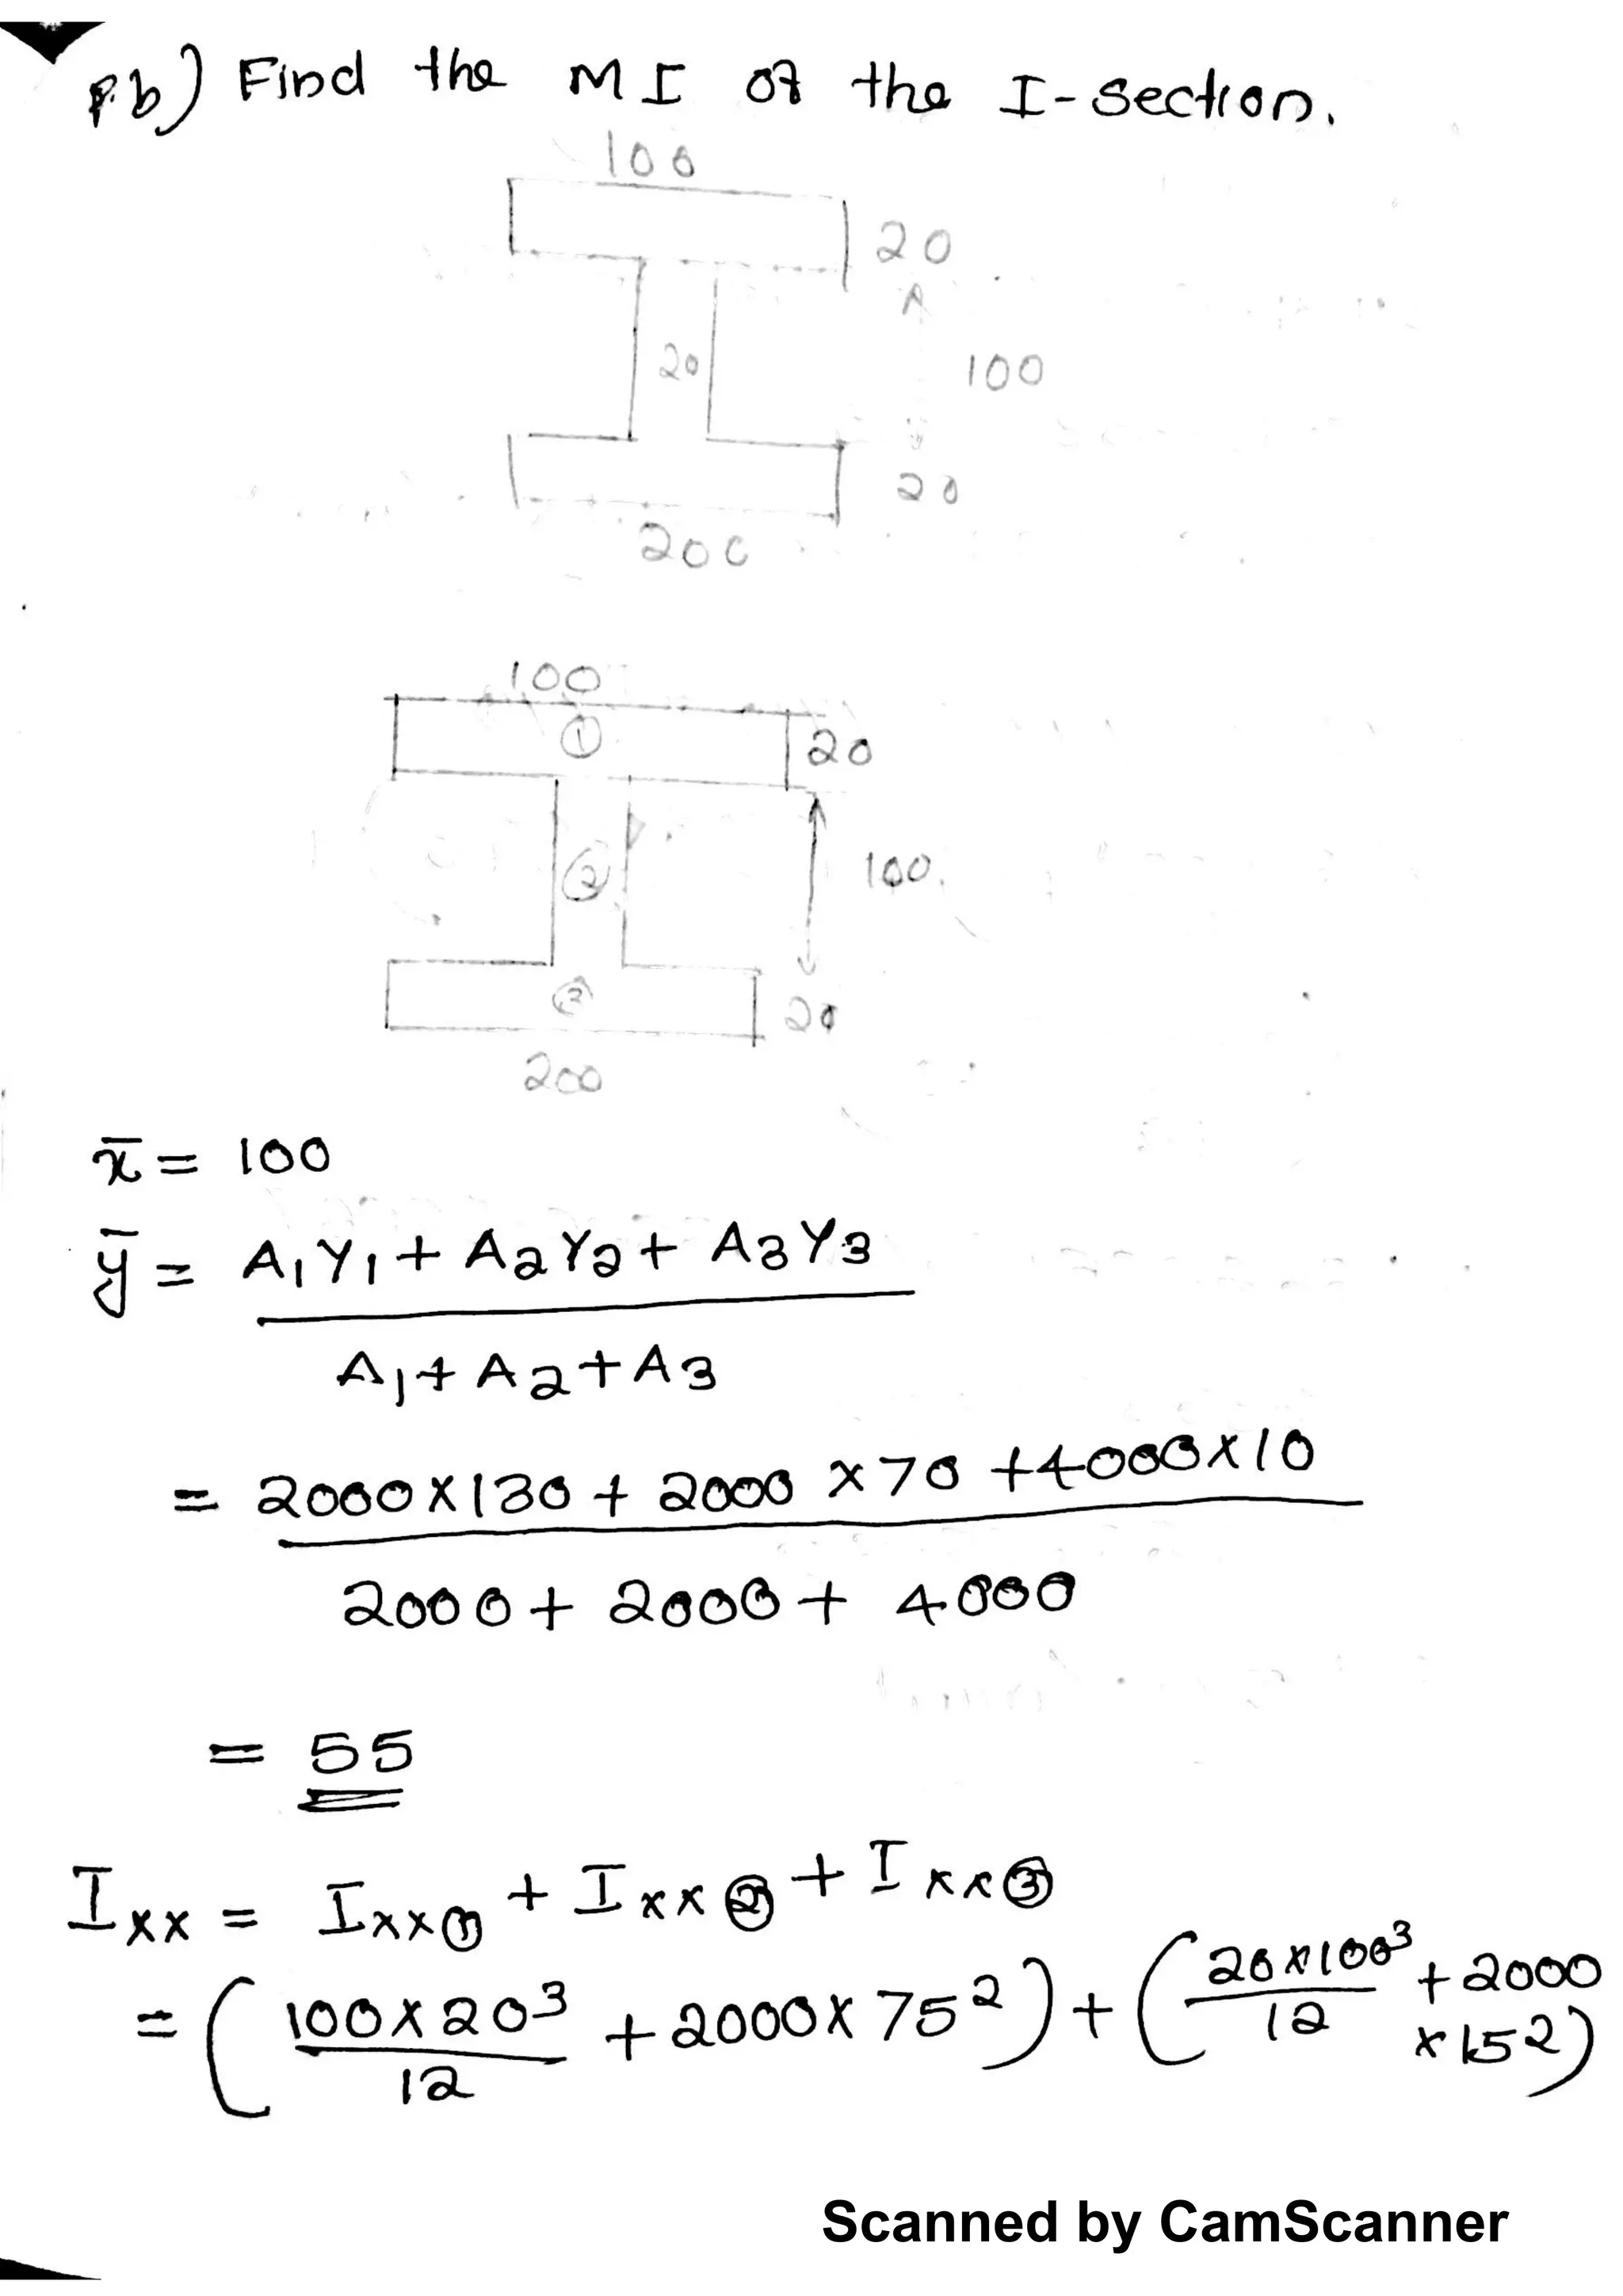 Pb) Find the MI of the I-section.
100
20
20
100
20
200
100
①
20
②
100
③
20
200
x̄ = 100
ȳ = A₁Y₁ + A₂Y₂ + A₃Y₃
A₁ + A₂ + A₃
= 2000 × 130 + 2000 × 70 + 4000 × 10
2000 + 2000 + 4000
= 55
Ixx = Ixx① + Ixx② + Ixx③
= (100 × 20³/12 + 2000 × 75²) + (20 × 100³/12 + 2000 × 15²)
Scanned by CamScanner